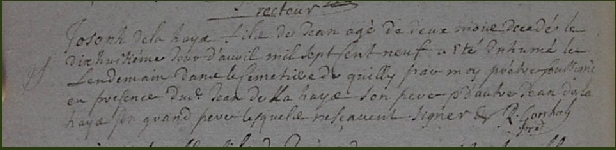 recteur
Joseph de la haye fils de Jean agé de deux mois decedé le
dixhuitiéme Jour d'avril mil sept cent neuf a eté Inhumé le
Lendemain dans le cimetiére de guilly par moy prétre
en presence dud. Jean de la haye son pere & d'autre Jean de la
haye son grand pere lesquels ne sçavent signer